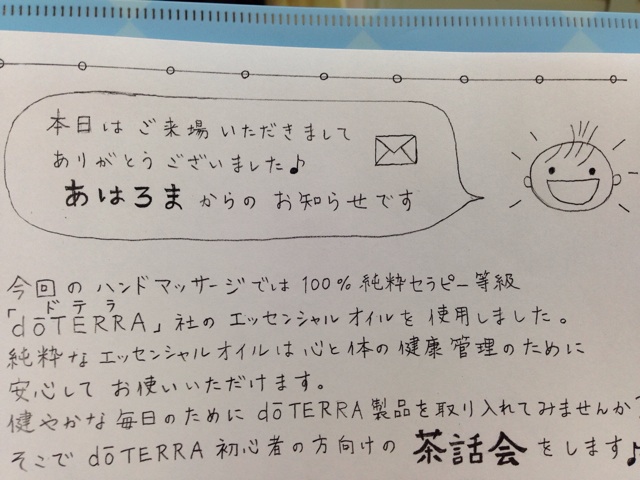 本日は ご来場いただきまして
ありがとうございました♪
あはろま からの お知らせです
今回の ハンドマッサージでは 100% 純粋セラピー等級
ドテラ
「dōTERRA」社の エッセンシャルオイルを 使用しました。
純粋な エッセンシャルオイルは 心と体の 健康管理のために
安心して お使いいただけます。
健やかな 毎日のために dōTERRA製品を 取り入れてみませんか?
そこで dōTERRA 初心者の方向けの 茶話会 をします♪